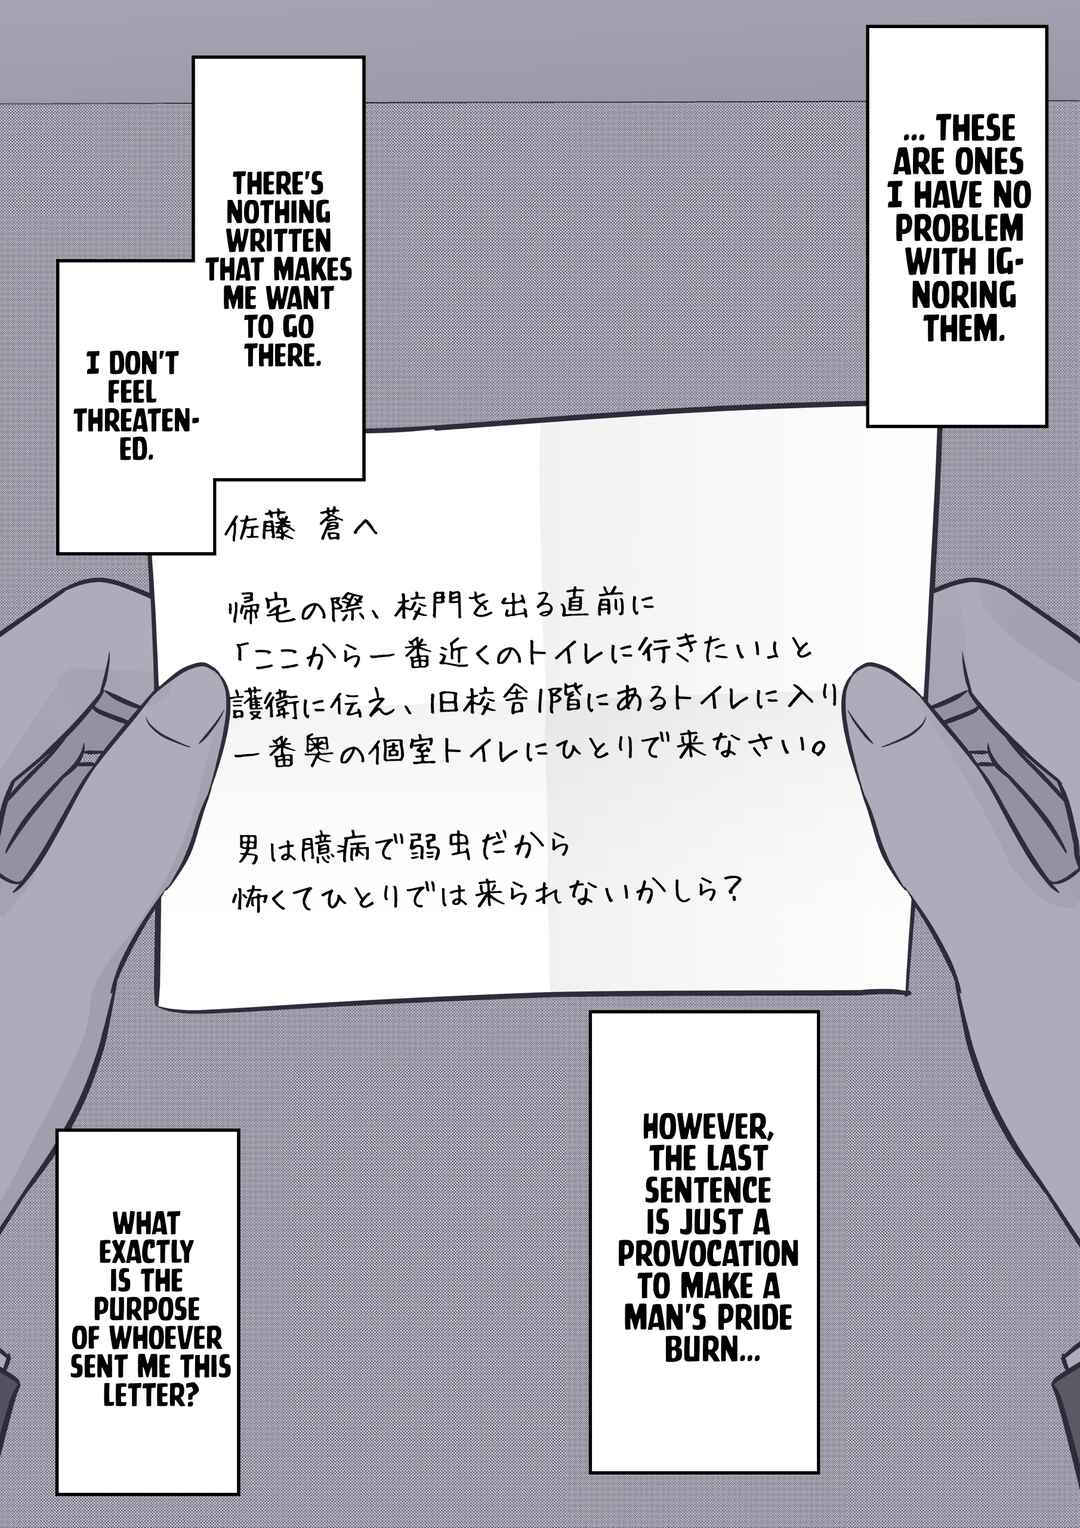 ... THESE
ARE ONES
I HAVE NO
PROBLEM
WITH IG-
NORING
THEM.
THERE'S
NOTHING
WRITTEN
THAT MAKES
ME WANT
TO GO
THERE.
I DON'T
FEEL
THREATEN-
ED.
佐藤 蒼へ
帰宅の際、校門を出る直前に
「ここから一番近くのトイレに行きたい」と
護衛に伝え、旧校舎1階にあるトイレに入り
一番奥の個室トイレにひとりで来なさい。
男は臆病で弱虫だから
怖くてひとりでは来られないかしら?
HOWEVER,
THE LAST
SENTENCE
IS JUST A
PROVOCATION
TO MAKE A
MAN'S PRIDE
BURN...
WHAT
EXACTLY
IS THE
PURPOSE
OF WHOEVER
SENT ME THIS
LETTER?